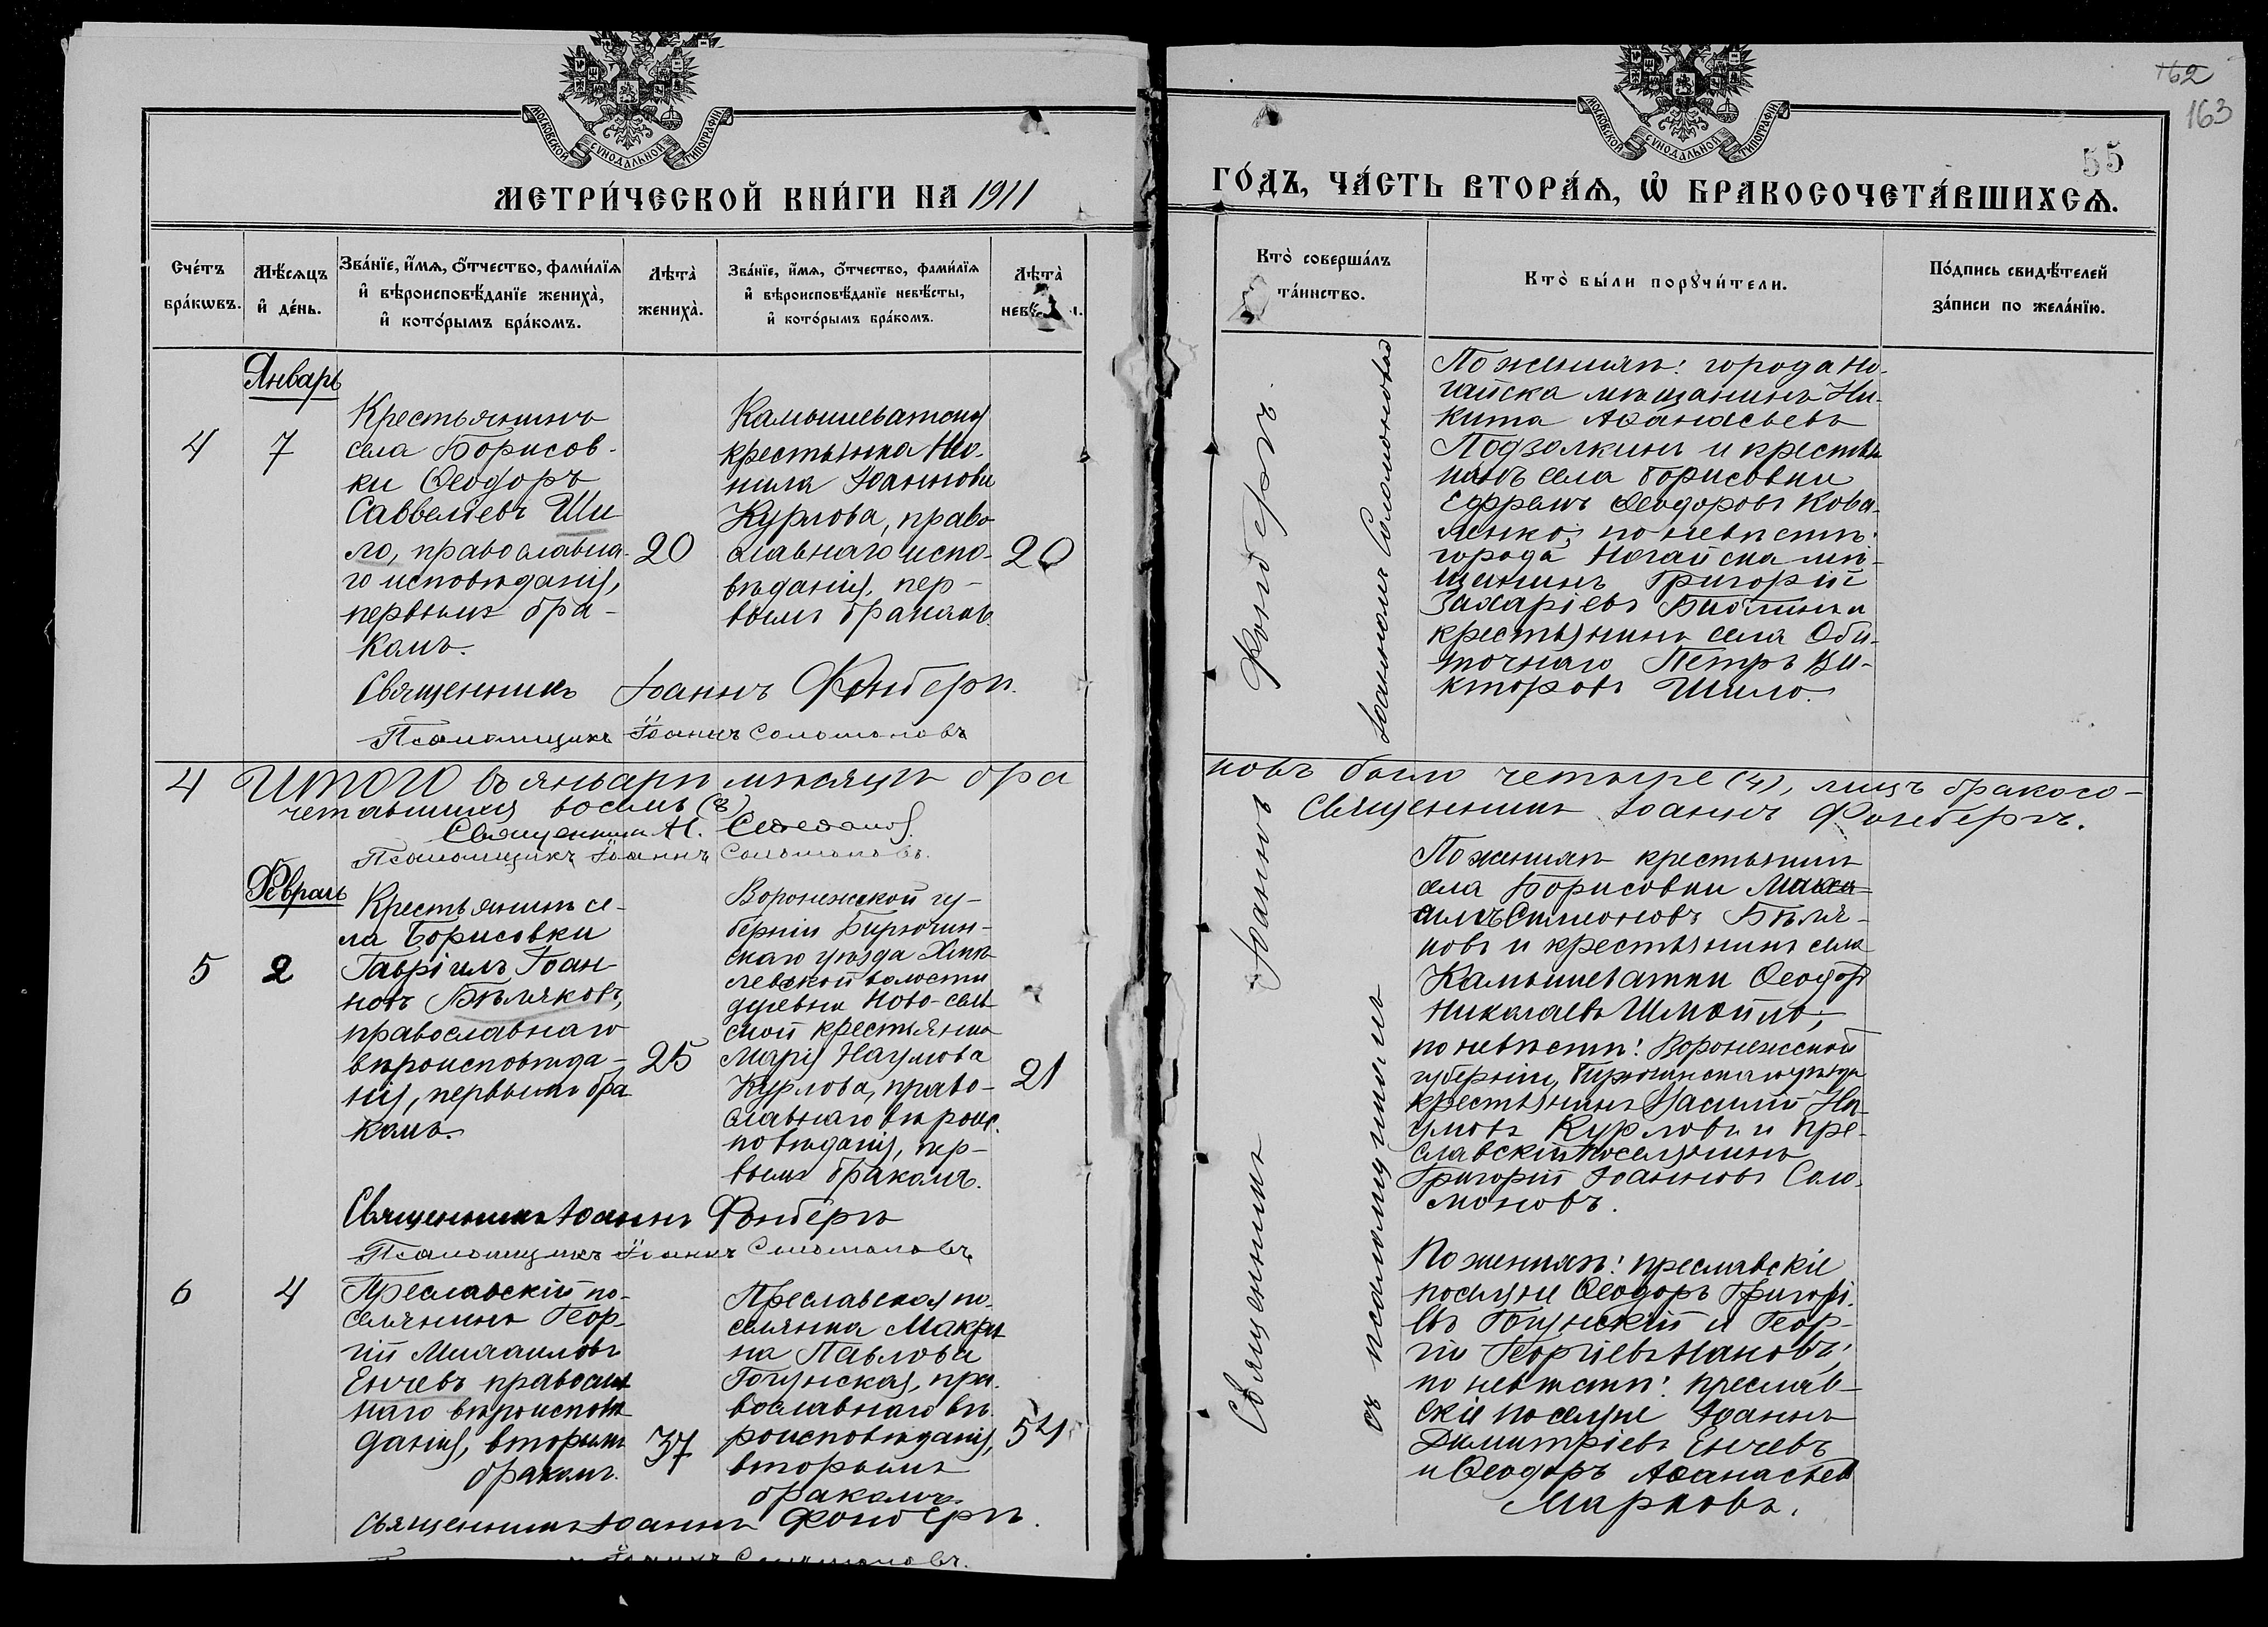 МОСКОВСКОЙ СУНОДАЛЬНОЙ ТИПОГРАФІИ
МЕТРИ́ЧЕСКОЙ КНИ́ГИ НА 1911
Сче́тъ бра́кωвъ.
Мѣ́сяцъ и҆ де́нь.
Зва́нїе, и҆́мѧ, ѻ҆́тчество, фами́лїѧ
и҆ вѣроисповѣ́данїе жениха̀,
и҆ кото́рымъ бра́комъ.
Лѣта̀
жениха̀.
Зва́нїе, и҆́мѧ, ѻ҆́тчество, фами́лїѧ
и҆ вѣроисповѣ́данїе невѣ́сты,
и҆ кото́рымъ бра́комъ.
Лѣта̀
Январь
4
7
Крестьянинъ
села Борисов-
ки Ѳеодоръ
Саввеліевъ Ши
ло, православна-
го исповѣданія,
первымъ бра-
комъ.
20
Камышеватская
крестьянка Нео-
нила Іоаннова
Курлова, право-
славнаго испо-
вѣданія, пер-
вымъ бракомъ.
20
Священникъ Іоаннъ Фонберг.
Псаломщикъ Іоаннъ Соломоновъ
4 Итого въ январѣ мѣсяцѣ бра
четавшихся восемь (8)
Священникъ Н.
Псаломщикъ Іоаннъ Соломоновъ.
Февраль
5
2
Крестьянинъ се-
ла Борисовки
Гавріилъ Іоан-
новъ Бѣляковъ,
православнаго
вѣроисповѣда-
нія, первымъ бра
комъ.
25
Воронежской гу-
берніи Бирючин-
скаго уѣзда
волости
деревни Ново-сель
ской крестьянка
Марія Наумова
Курлова, право-
славнаго вѣроис-
повѣданія, пер-
вымъ бракомъ.
21
Священникъ Іоаннъ Фонберг
Псаломщикъ Іоаннъ Соломоновъ
6
4
Преславскій по-
селянинъ Геор-
гій Михаиловъ
Енчевъ православ
наго вѣроисповѣ
данія, вторымъ
бракомъ.
37
Преславская по-
селянка Макри
на Павлова
православнаго вѣ
роисповѣданія,
вторымъ
бракомъ.
Священникъ Іоаннъ Фонберг.
Іоаннъ Соломоновъ.
162
163
55
МОСКОВСКОЙ СУНОДАЛЬНОЙ ТИПОГРАФІИ
ГО́ДЪ, ЧА́СТЬ ВТОРА́Ѧ, Ѡ҆ БРАКОСОЧЕТА́ВШИХСѦ.
Кто̀ соверша́лъ
та́инство.
Кто̀ бы́ли порꙋчи́тели.
По́дпись свидѣ́телей
за́писи по жела́нїю.
Священникъ Іоаннъ Фонбергъ
съ псаломщикомъ Іоанномъ Соломоновымъ
По женихѣ: города Но-
гайска мѣщанинъ Ни-
кита Аѳанасьевъ
Подзолкинъ и крестья
нинъ села Борисовки
Ефремъ Ѳеодоровъ Кова-
ленко; по невѣстѣ:
города Ногайска мѣ-
щанинъ Григорій
Захаріевъ
крестьянинъ села Оби-
точнаго Петръ Ви-
кторовъ Шило.
ковъ было четыре (4), лицъ бракосо-
Священникъ Іоаннъ Фонбергъ.
По женихѣ крестьянинъ
села Борисовки Миха
илъ Симоновъ Бѣля-
ковъ и крестьянинъ села
Камышеватки Ѳеодоръ
Николаевъ
по невѣстѣ: Воронежской
губерніи, Бирючинскаго уѣзда
крестьянинъ Василій На-
умовъ Курловъ и Пре-
славскій поселянинъ
Григорій Іоанновъ Соло-
моновъ.
По женихѣ: преславскіе
поселяне Ѳеодоръ Григорі-
евъ и Геор-
гій Георгіевъ
по невѣстѣ: преслав-
скіе поселяне Іоаннъ
Димитріевъ Енчевъ
и Ѳеодоръ Аѳанасьев
Марковъ.